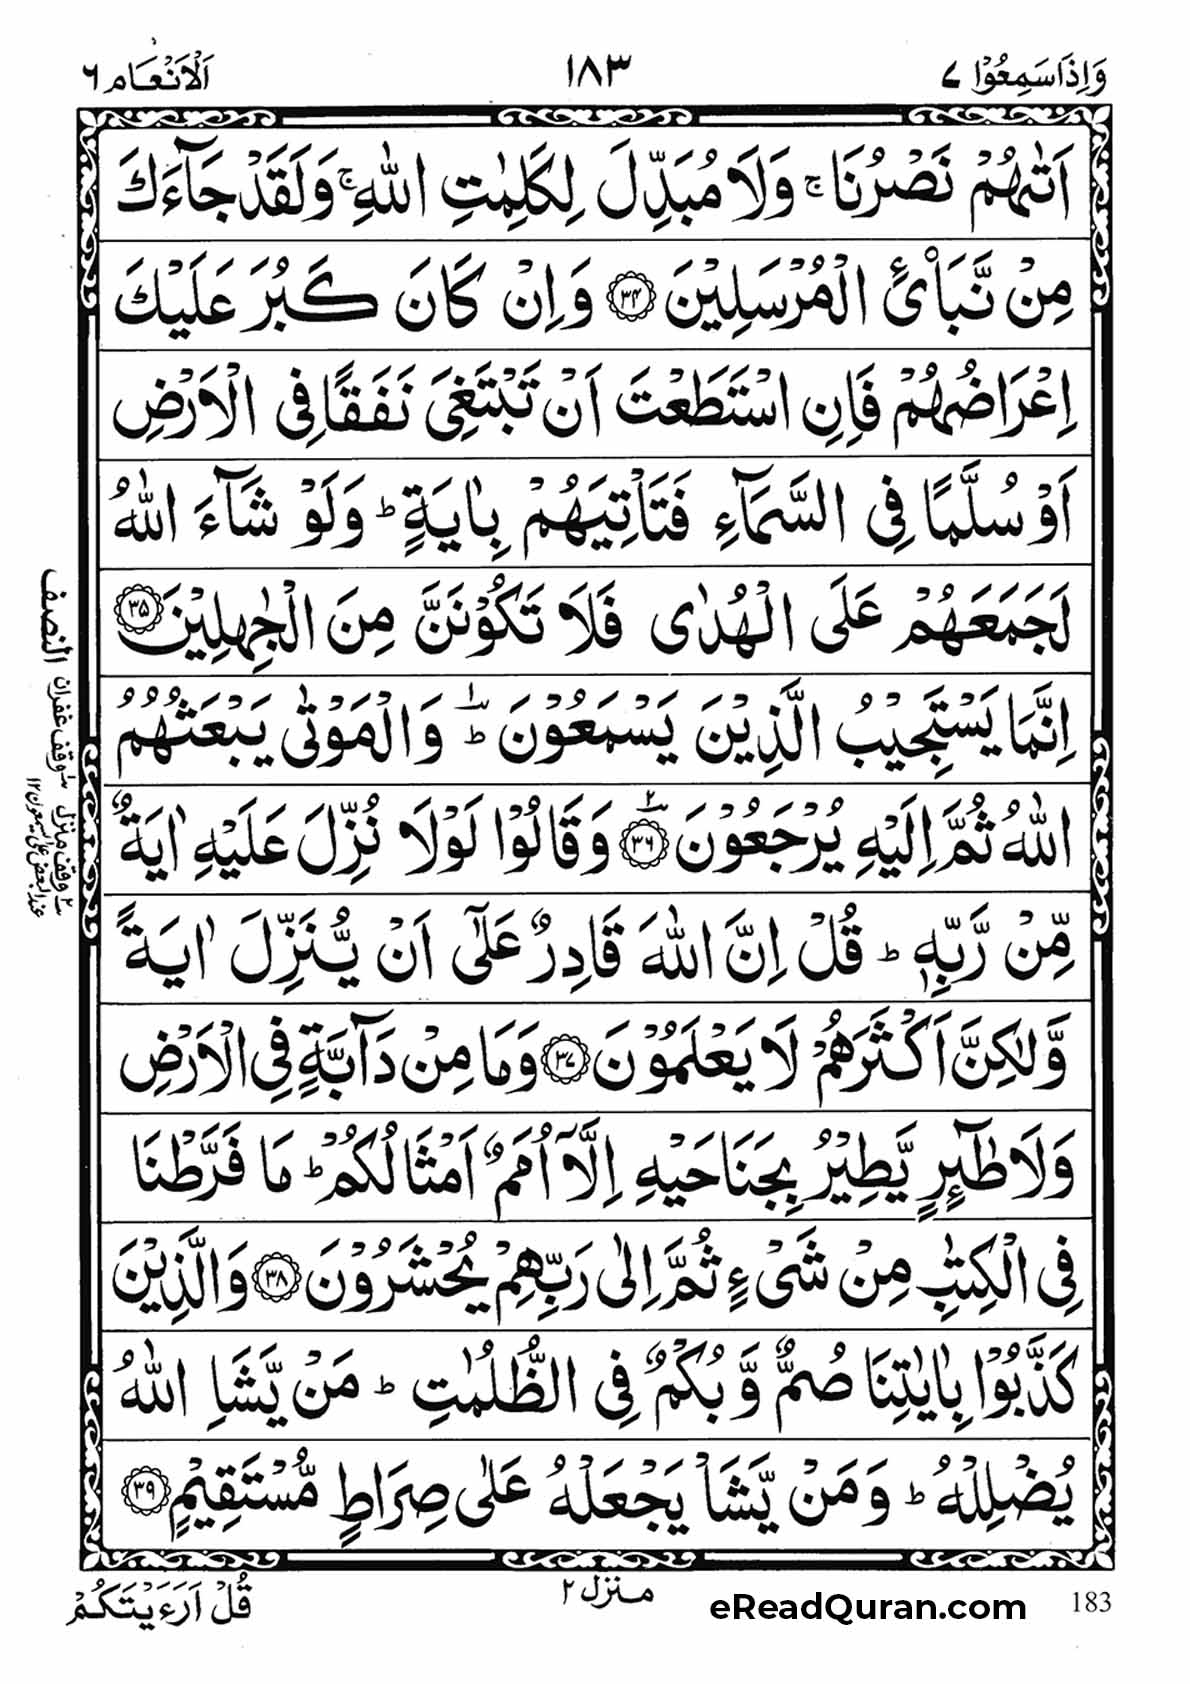 وَاِذَاسَمِعُوْا ٧
١٨٣
اَلْاَنْعَام ٦
اَتٰىهُمْ نَصْرُنَا ۚ وَلَا مُبَدِّلَ لِكَلِمٰتِ اللّٰهِ ۚ وَلَقَدْ جَآءَكَ
مِنْ نَّبَاۡئِ الْمُرْسَلِيْنَ ﴿۳۴﴾ وَاِنْ كَانَ كَبُرَ عَلَيْكَ
اِعْرَاضُهُمْ فَاِنِ اسْتَطَعْتَ اَنْ تَبْتَغِيَ نَفَقًا فِى الْاَرْضِ
اَوْ سُلَّمًا فِى السَّمَآءِ فَتَاْتِيَهُمْ بِاٰيَةٍ ؕ وَلَوْ شَآءَ اللّٰهُ
لَجَمَعَهُمْ عَلَى الْهُدٰى فَلَا تَكُوْنَنَّ مِنَ الْجٰهِلِيْنَ ﴿۳۵﴾
اِنَّمَا يَسْتَجِيْبُ الَّذِيْنَ يَسْمَعُوْنَ ؕ وَالْمَوْتٰى يَبْعَثُهُمُ
اللّٰهُ ثُمَّ اِلَيْهِ يُرْجَعُوْنَ ﴿۳۶﴾ وَقَالُوْا لَوْلَا نُزِّلَ عَلَيْهِ اٰيَةٌ
مِّنْ رَّبِّهٖ ؕ قُلْ اِنَّ اللّٰهَ قَادِرٌ عَلٰٓى اَنْ يُّنَزِّلَ اٰيَةً
وَّلٰكِنَّ اَكْثَرَهُمْ لَا يَعْلَمُوْنَ ﴿۳۷﴾ وَمَا مِنْ دَآبَّةٍ فِى الْاَرْضِ
وَلَا طٰٓئِرٍ يَّطِيْرُ بِجَنَاحَيْهِ اِلَّاۤ اُمَمٌ اَمْثَالُكُمْ ؕ مَا فَرَّطْنَا
فِى الْكِتٰبِ مِنْ شَىْءٍ ثُمَّ اِلٰى رَبِّهِمْ يُحْشَرُوْنَ ﴿۳۸﴾ وَالَّذِيْنَ
كَذَّبُوْا بِاٰيٰتِنَا صُمٌّ وَّبُكْمٌ فِى الظُّلُمٰتِ ؕ مَنْ يَّشَاِ اللّٰهُ
يُضْلِلْهُ ؕ وَمَنْ يَّشَاْ يَجْعَلْهُ عَلٰى صِرَاطٍ مُّسْتَقِيْمٍ ﴿۳۹﴾
النصف
وقف غفران
وقف منزل
منزل ٢
قُلْ اَرَءَيْتَكُمْ
eReadQuran.com
183